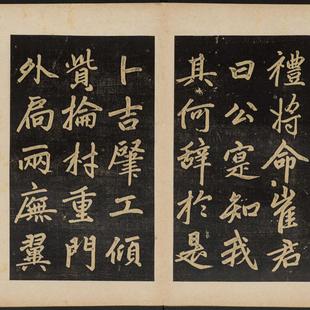 禮將命崔君
曰公寔知我
其何辭於是
卜吉肇工傾
貲掄材重門
外局兩廡翼